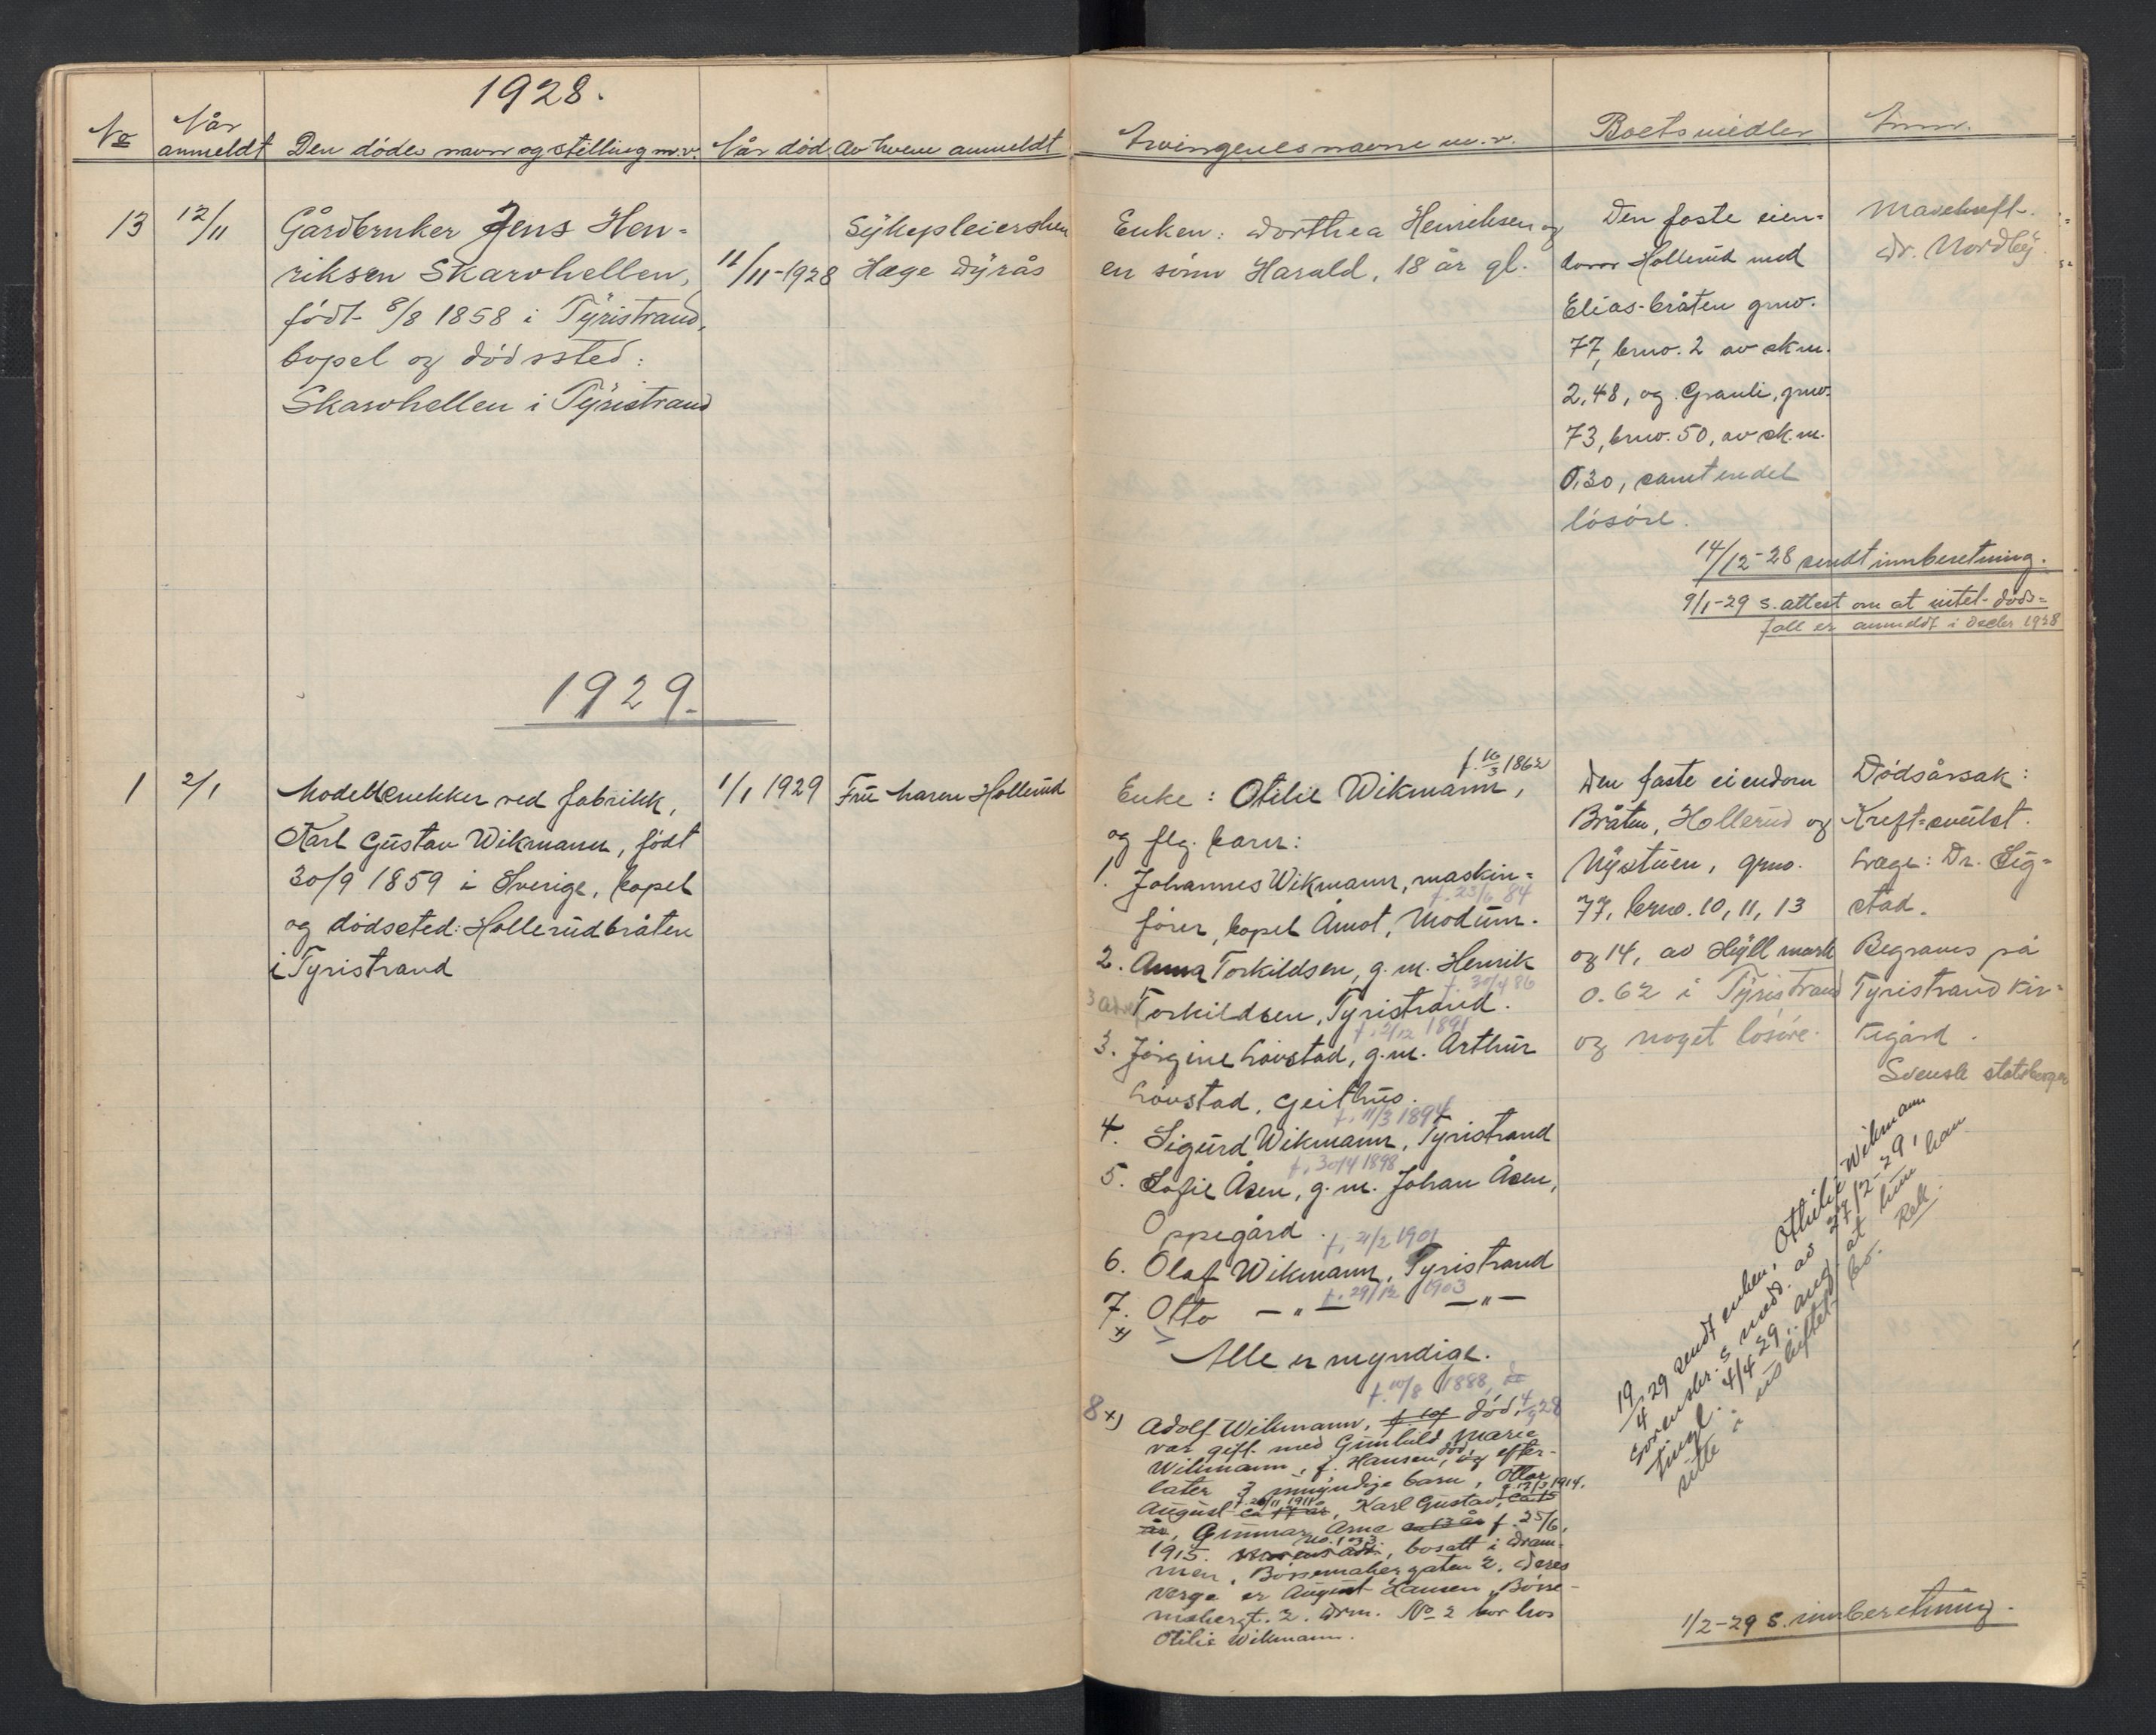 1928.
No
Når anmeldt
Den dødes navn og stilling m.v.
Når død
Av hvem anmeldt
Arvingenes navne m.v.
Boets midler
Anm.
13
12/11
Gårdbruker Jens Hen-
riksen Skarvhellen,
født 8/8 1858 i Tyristrand,
bopel og dødssted:
Skarvhellen i Tyristrand
11/11-1928
Sykepleiersken
Hæge Dyrås
Enken: Dorthea Henriksen og
en sønn Harald, 18 år gl.
Den faste eien-
dom Hollerud med
Elias-bråten gno.
77, bruo. 2 av skm.
2,48, og Granli, gno.
73, bruo. 50, av sk.m.
0,30, samt endel
løsøre.
Mavekreft.
Dr. Nordby
14/12-28 sendt innberetning.
9/1-29 s. attest om at intet døds-
fall er anmeldt i decbr 1928
1929.
1
2/1
Modellsnekker ved fabrikk,
Karl Gustav Wikmann, født
30/9 1859 i Sverige, bopel
og dødssted: Hollerudbråten
i Tyristrand
1/1 1929
Fru Maren Hollerud
f. 16/3 1862
Enke: Otilie Wikmann,
og flg. barn:
1. Johannes Wikmann, maskin-
f. 23/6 84
fører, bopel Åmot, Modum.
2. Anna Torkildsen, g.m. Henrik
f. 30/4 86
Torkildsen, Tyristrand.
f. 2/12 1891
3. Jørgine Løvstad, g.m. Arthur
Løvstad, Geithus.
f. 11/3 1894
4. Sigurd Wikmann, Tyristrand
f. 30/4 1898
5. Sofie Åsen, g.m. Johan Åsen,
Oppegård.
f. 21/2 1901
6. Olaf Wikmann, Tyristrand
f. 29/12 1903
7. Otto — " — — " —
x)
Alle er myndige.
f. 10/8 1888,
8 x) Adolf Wikmann, død 4/9 28
var gift med Gunhild Marie
Wikmann, f. Hansen, død, og efter-
later 3 umyndige barn, Ottar
August f. 26/11 1911, Karl Gustav, f. 17/3 1914,
ca 17 år
ca 15
år, Gunnar Arne ca 13 år f. 25/6,
1915. bosatt i Dram-
men, Børsemakergaten 2. Deres
verge er August Hansen, Børse-
makergt. 2. Drm. No 2 bor hos
Otilie Wikmann.
Den faste eiendom
Bråten, Hollerud og
Nystuen, gno.
77, bruo. 10, 11, 13
og 14, av skyll mark
0.62 i Tyristrand
og noget løsøre.
Dødsårsak:
Kreft-svulst.
Læge: Dr. Sig-
stad.
Begraves på
Tyristrand Kir-
kegård.
Svensk statsborger
19/4 29 sendt enken, Othilie Wikmann
Sorenskr.s medd. av 27/2-29,
tingl. 4/4 29, ang. at hun kan
sitte i uskiftet bo. Rek.
1/2-29 s. innberetning.